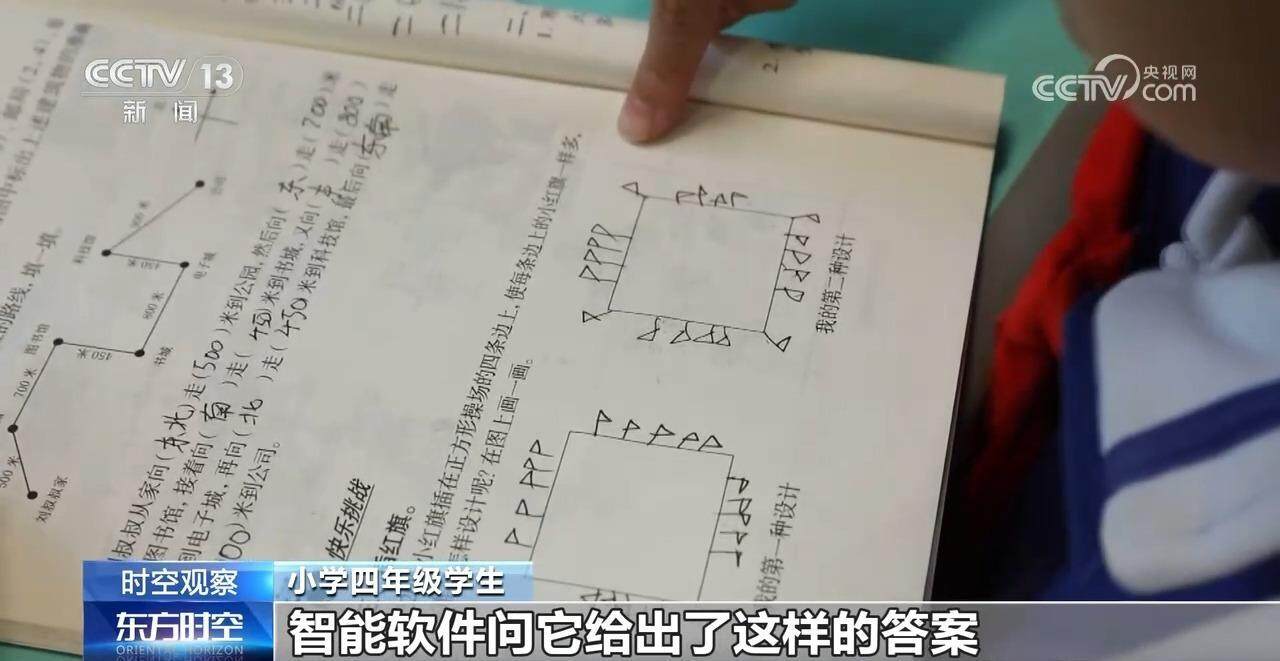 CCTV 13
新闻
央视网
CCTV com
2.
1.
(2,4),
的路线,填一填。
500米
700米
450米
600米
刘叔叔家
图书馆
书城
电子城
科技馆
叔叔从家向(东北)走(500)米到公园,然后向(东)走(700)米
图书馆,接着向(南)走(450)米到书城,又向(
到电子城,再向(北)走(450)米到科技馆,最后向(东南)走
00)米到公司。
快乐挑战
插红旗。
小红旗插在正方形操场的四条边上,使每条边上的小红旗一样多,
怎样设计呢?在图上画一画。
我的第一种设计
我的第二种设计
时空观察
小学四年级学生
东方时空
ORIENTAL HORIZON
智能软件问它给出了这样的答案